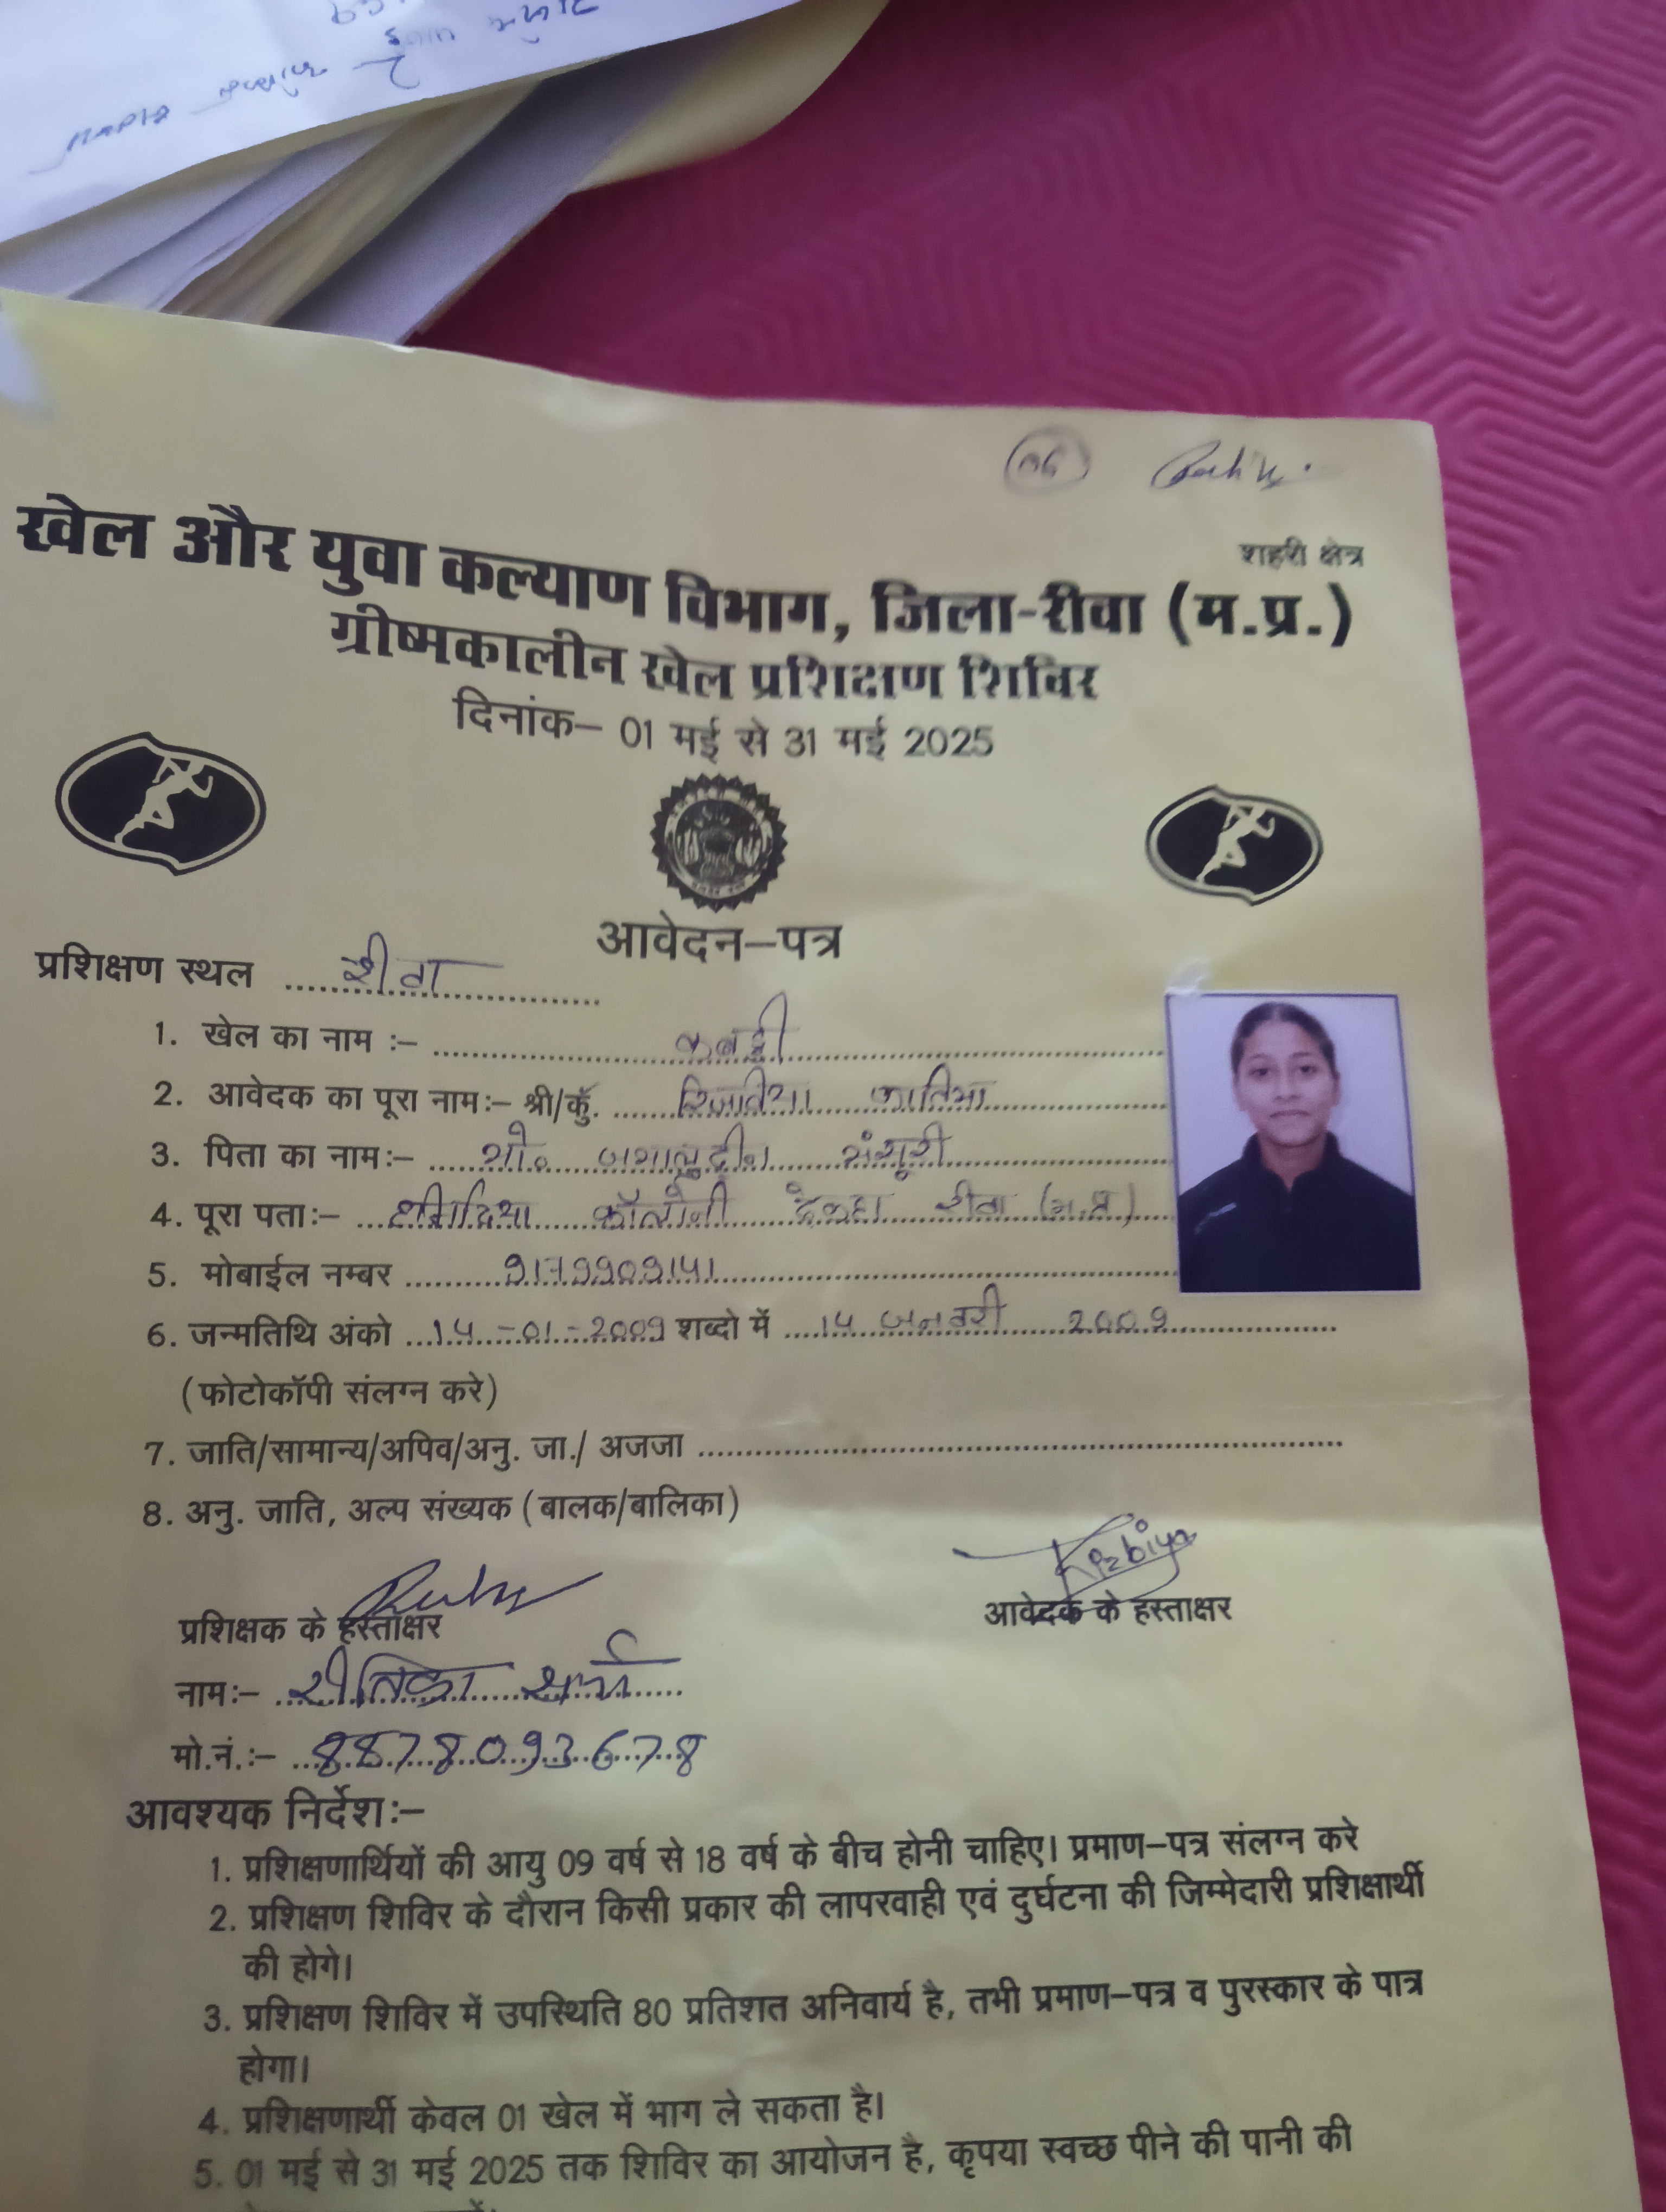 06
शहरी क्षेत्र
खेल और युवा कल्याण विभाग, जिला-रीवा (म.प्र.)
ग्रीष्मकालीन खेल प्रशिक्षण शिविर
दिनांक– 01 मई से 31 मई 2025
आवेदन–पत्र
प्रशिक्षण स्थल रीवा
1. खेल का नाम :– कबड्डी
2. आवेदक का पूरा नाम:– श्री/कुॅ. फातिमा
3. पिता का नाम:– मो० जमालुद्दीन मंसूरी
4. पूरा पता:– कॉलोनी देकहा रीवा (म.प्र)
5. मोबाईल नम्बर 9179909141
6. जन्मतिथि अंको 14-01-2009 शब्दो में 14 जनवरी 2009
(फोटोकॉपी संलग्न करे)
7. जाति/सामान्य/अपिव/अनु. जा./ अजजा
8. अनु. जाति, अल्प संख्यक (बालक/बालिका)
Rizbiya
प्रशिक्षक के हस्ताक्षर आवेदक के हस्ताक्षर
नाम:– रीतिका शर्मा
मो.नं.:– 8878093678
आवश्यक निर्देश:–
1. प्रशिक्षणार्थियों की आयु 09 वर्ष से 18 वर्ष के बीच होनी चाहिए। प्रमाण–पत्र संलग्न करे
2. प्रशिक्षण शिविर के दौरान किसी प्रकार की लापरवाही एवं दुर्घटना की जिम्मेदारी प्रशिक्षार्थी
की होगे।
3. प्रशिक्षण शिविर में उपस्थिति 80 प्रतिशत अनिवार्य है, तभी प्रमाण–पत्र व पुरस्कार के पात्र
होगा।
4. प्रशिक्षणार्थी केवल 01 खेल में भाग ले सकता है।
5. 01 मई से 31 मई 2025 तक शिविर का आयोजन है, कृपया स्वच्छ पीने की पानी की